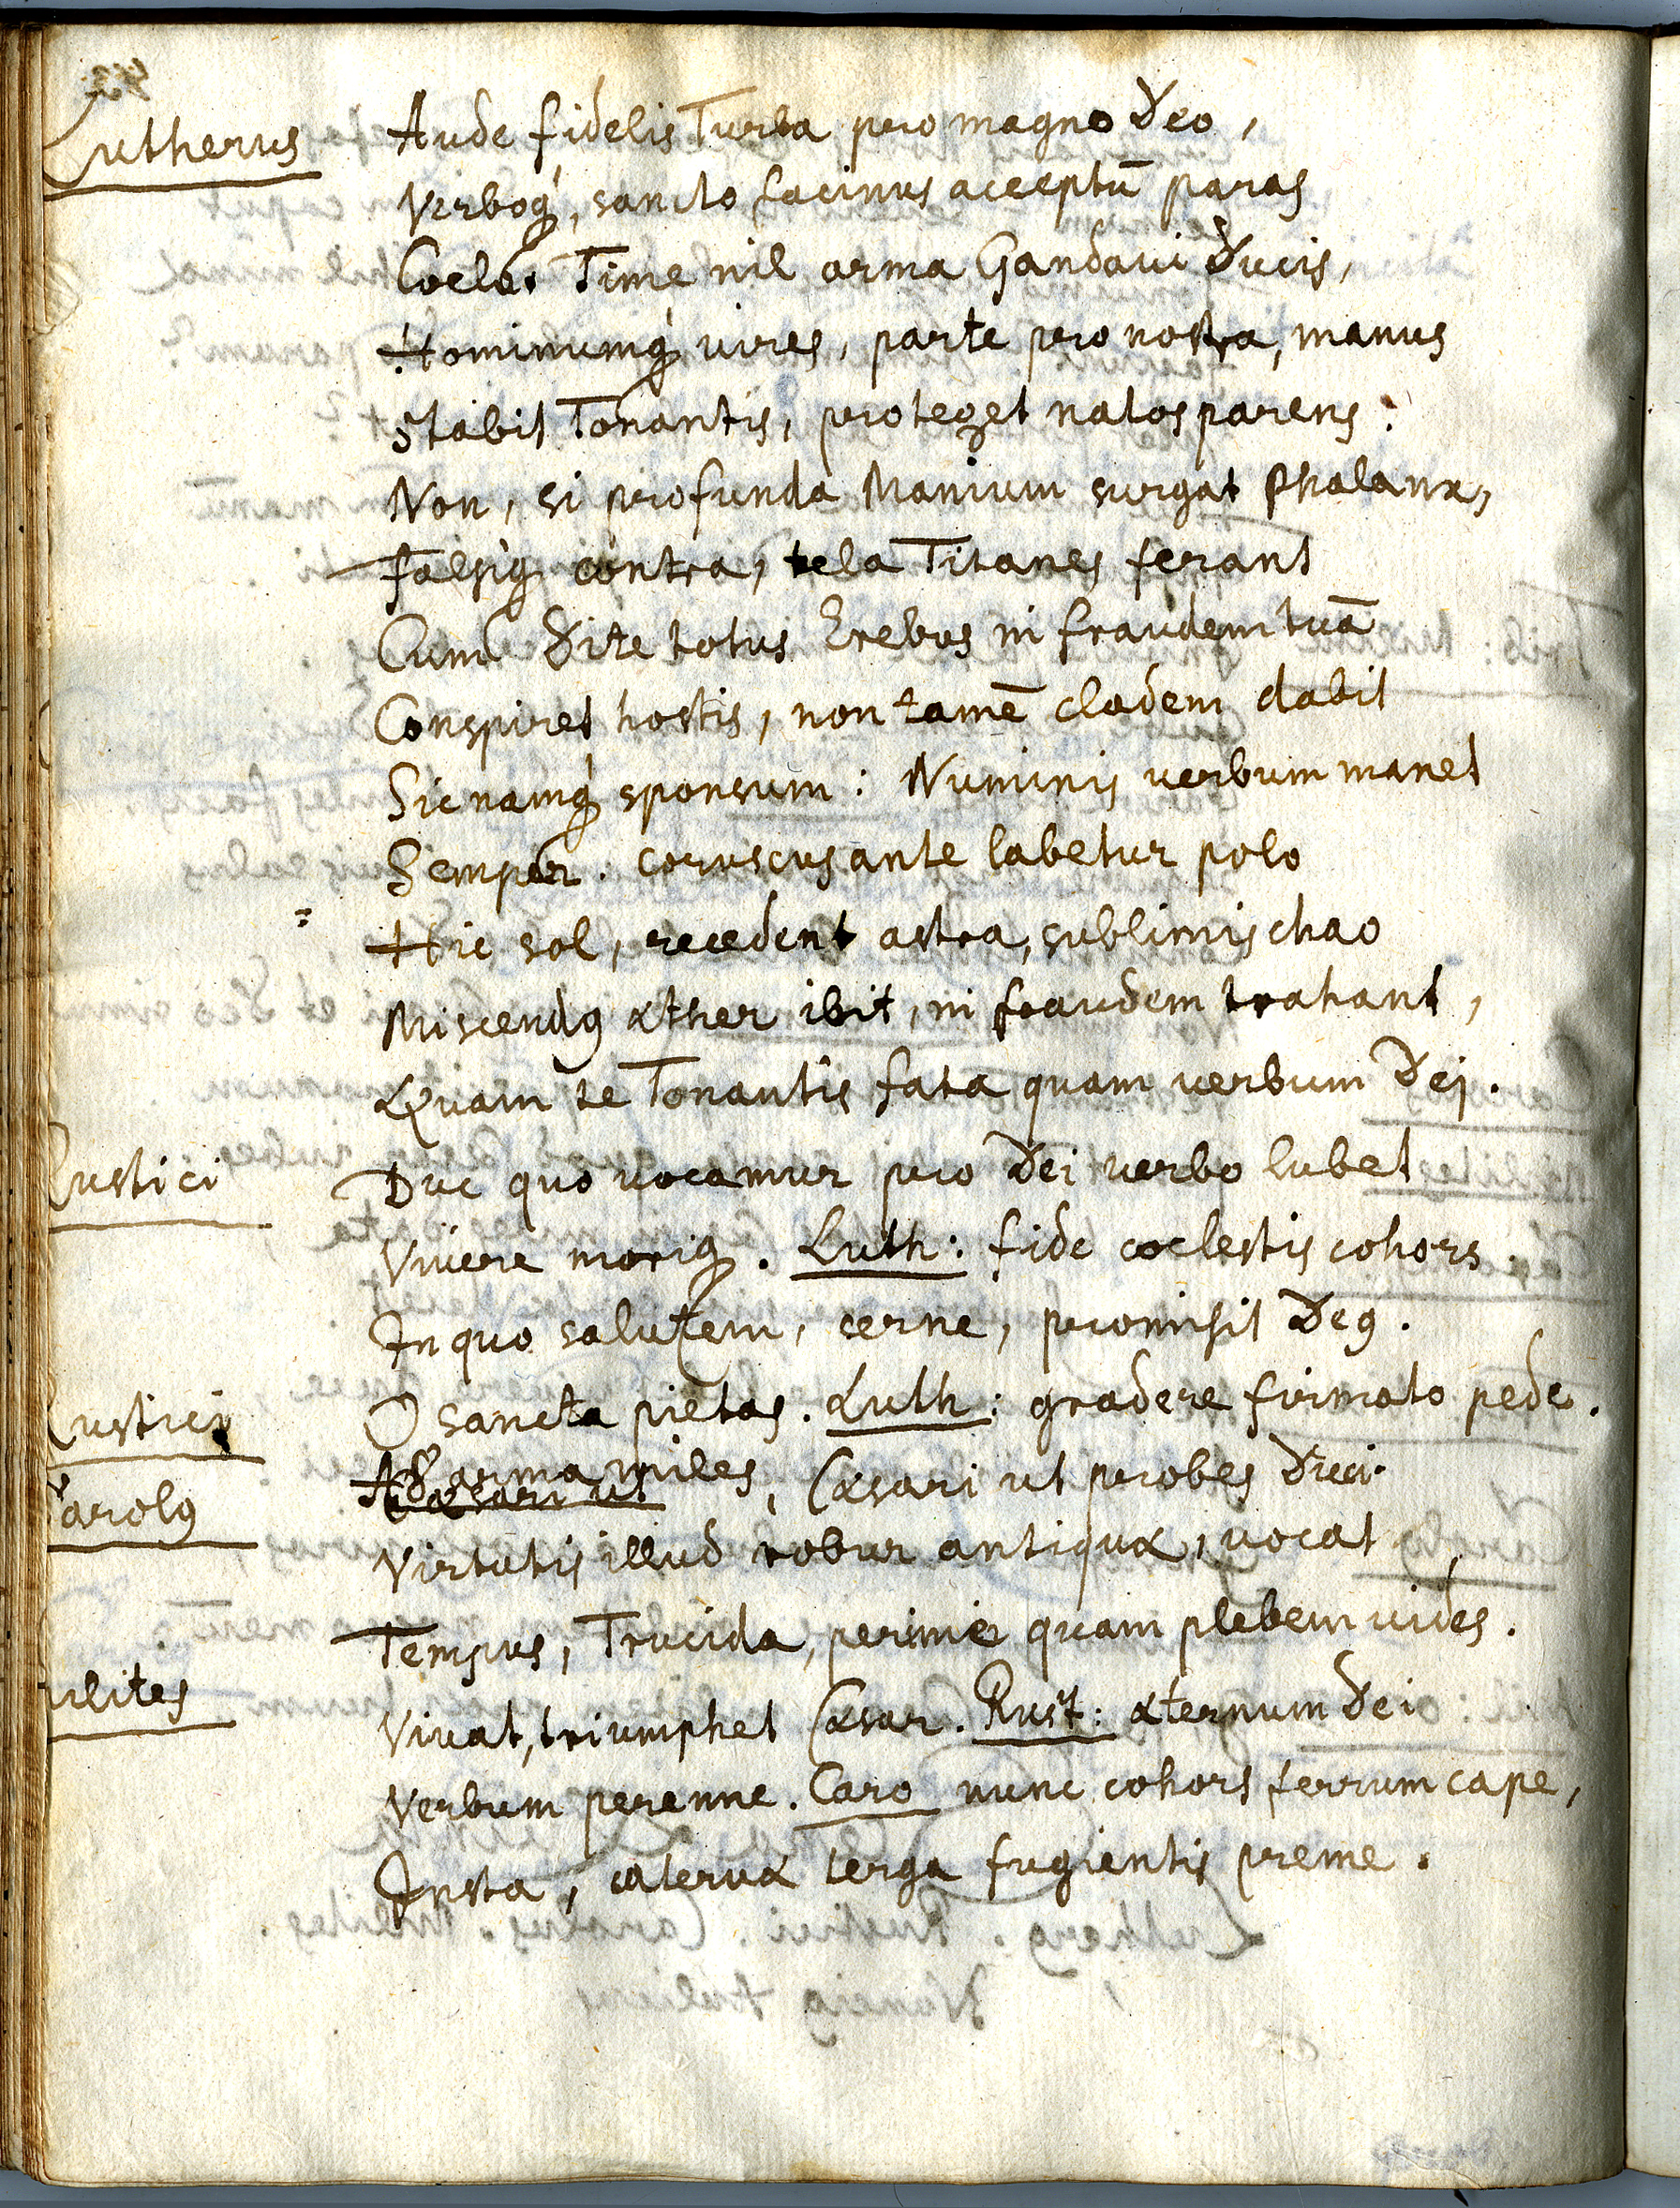 Lutherus Aude fidelis Turba pro magno Deo,
Verboq́, sancto facinus acceptū paras
Coelo. Time nil arma Gandavi Ducis,
Hominumq́ vires, parte pro nostra, manus
Stabit Tonantis, proteget natos parens.
Non, si profunda Manium surgat Phalanx,
Falsiq́ contra, tela Titanes ferant
Cum Dite totus Erebus in fraudem tuā
Conspiret hostis, non tamē cladem dabit
Sic namq́ sponsum: Numinis verbum manet
Semper. coruscus ante labetur polo
Hic sol, recedent astra, sublimis chao
Miscendꝰ æther ibit, in fraudem trahant,
Quam te Tonantis fata quam verbum Dei.
Rustici Duc quo vocamur pro Dei verbo lubet
Vivere moriq́. Luth: fide coelestis cohors.
In quo salutem, cerne, promisit Deꝰ.
Rustici O sancta pietas. Luth: gradere firmato pede.
Carolꝰ Ad arma miles, Cæsari ut probes Duci
Virtutis illud robur antiquæ, vocat
Tempus, Trucida, perime quam plebem vides.
Milites Vivat, triumphet Cæsar. Rust: æternum Dei
Verbum perenne. Caro nunc cohors ferrum cape,
Insta, catervæ terga fugientis preme.